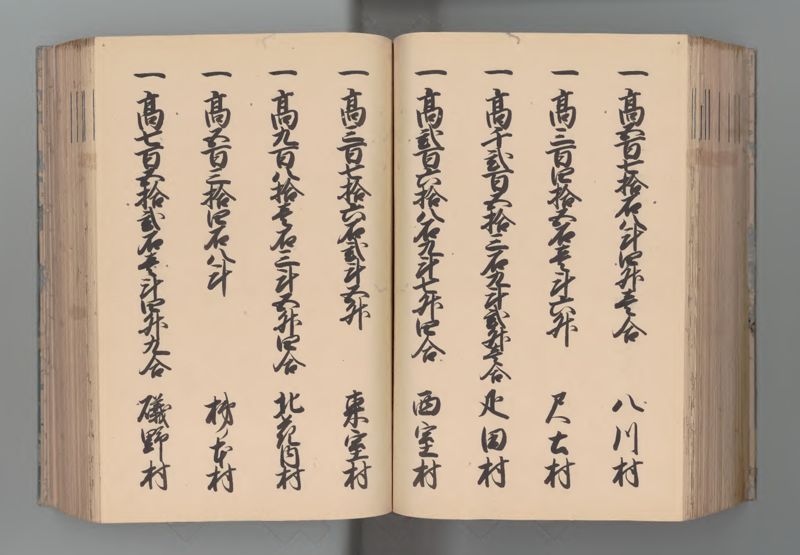 一 高五百七拾石八斗四升壱合 八川村
一 高三百四拾五石壱斗六升 尺土村
一 高千弐百五拾三石九斗弐升壱合 疋田村
一 高弐百六拾八石九斗七升四合 西室村
一 高三百七拾六石弐斗五升 東室村
一 高九百八拾壱石三斗五升四合 北花内村
一 高五百三拾四石八斗 村
一 高七百五拾弐石壱斗四升九合 礒野村